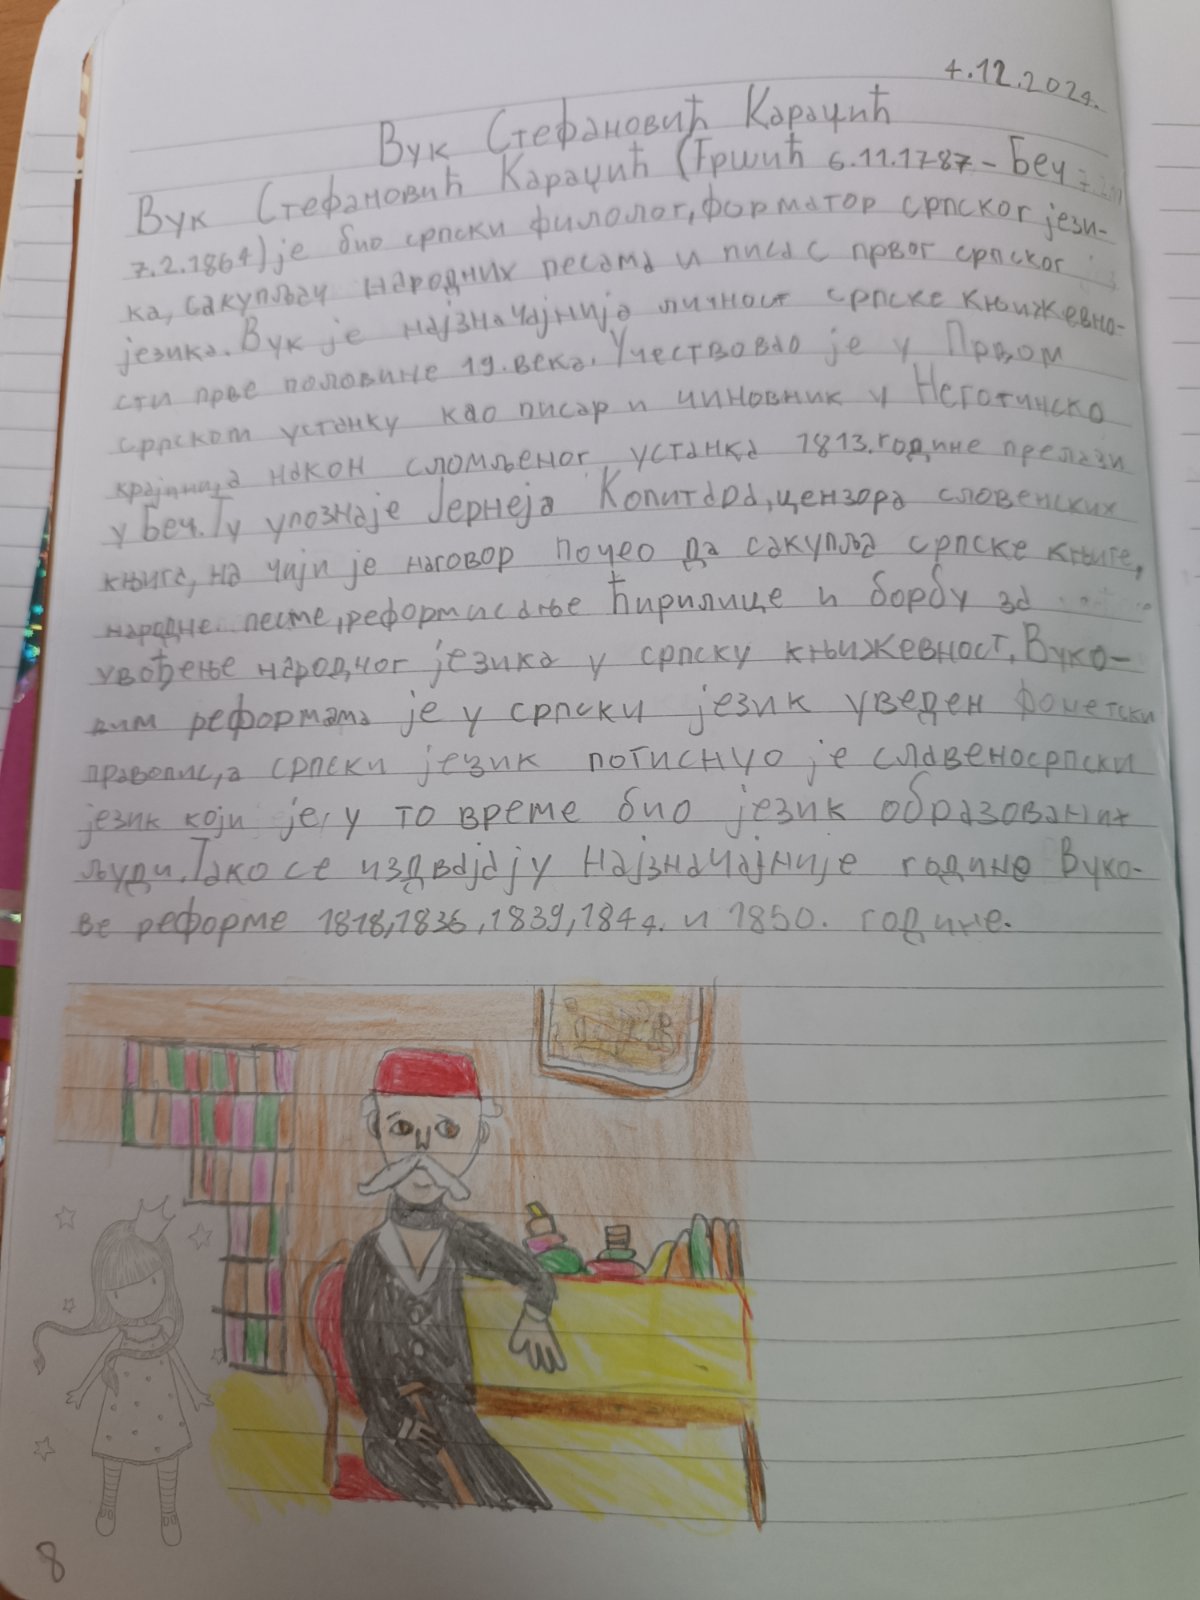 4.12.2024.
Вук Стефановић Караџић
Вук Стефановић Караџић (Тршић 6.11.1787 - Беч
7.2.1864) је био српски филолог, форматор српског јези-
ка, сакупљач народних песама и писас првог српског
језика. Вук је најзначајнија личност српске књижевно-
сти прве половине 19. века. Учествовао је у Првом
српском устанку као писар и чиновник у Неготинско
крајини, а након сломљеног устанка 1813. године прелази
у Беч. Ту упознаје Јернеја Копитара, цензора словенских
књига, на чији је наговор почео да сакупља српске књиге,
народне песме, реформисање ћирилице и борбу за
увођење народног језика у српску књижевност. Вуко-
вим реформама је у српски језик уведен фонетски
правопис, а српски језик потиснуо је славеносрпски
језик који је, у то време био језик образованих
људи. Тако се издвајају најзначајније године Вуко-
ве реформе 1818, 1836, 1839, 1844. и 1850. године.
8